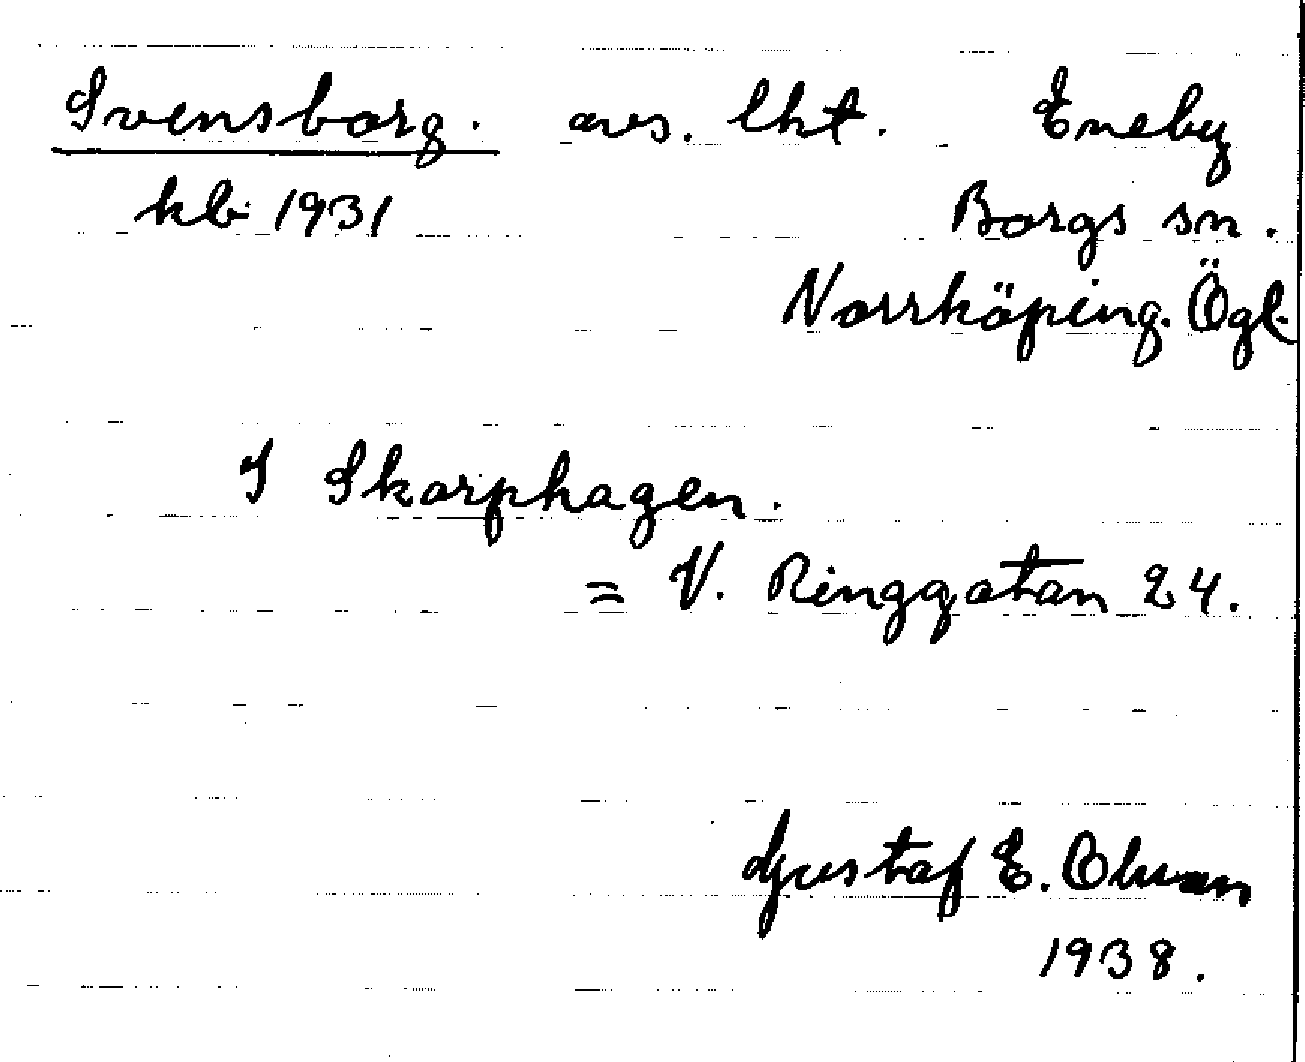 Svensborg. avs. lht. Eneby
kb 1931 Borgs sn.
Norrköping. Ögl.
I Skarphagen.
= V. Ringgatan 24.
Gustaf E. Olsson
1938.